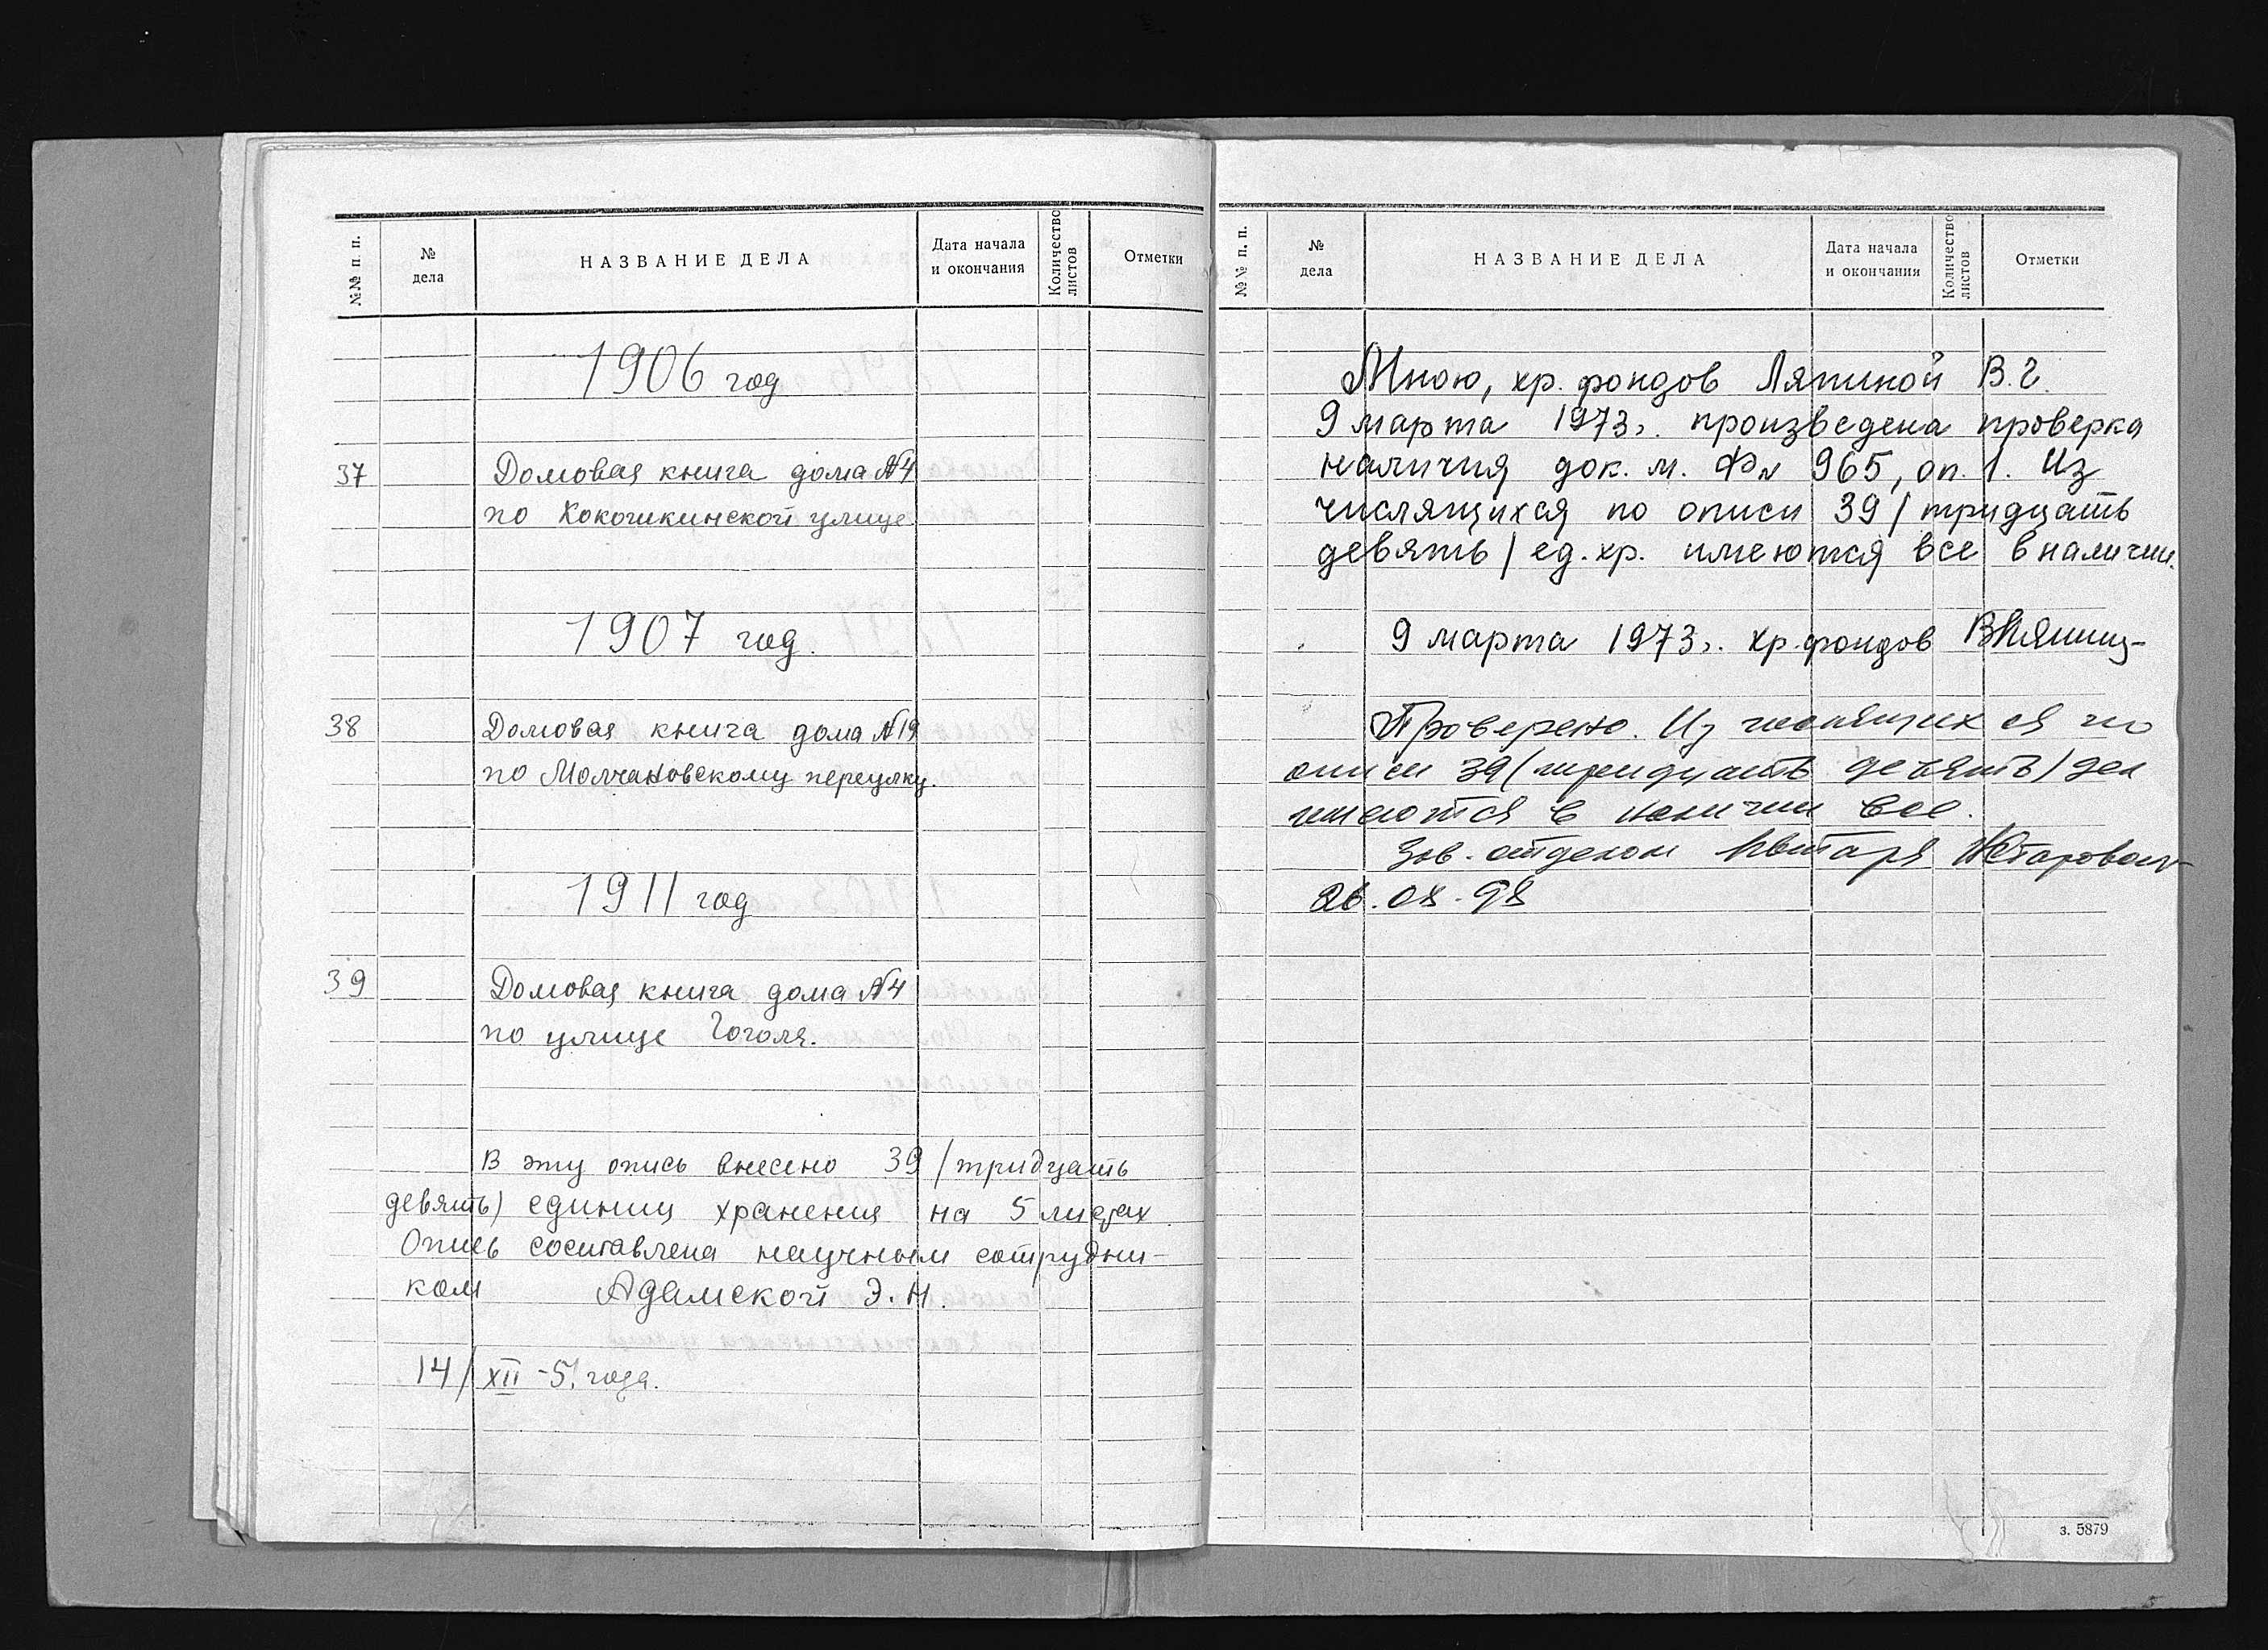 №№ п. п.
№ дела
НАЗВАНИЕ ДЕЛА
Дата начала и окончания
Количество листов
Отметки
1906 год
37 Домовая книга дома №4
по Кокошкинской улице
1907 год.
38 Домовая книга дома №19
по Молчановскому переулку.
1911 год
39 Домовая книга дома №4
по улице Гоголя.
В эту опись внесено 39 /тридцать
девять) единиц хранения на 5 листах.
Опись составлена научным сотрудни-
ком Адамской Э. Н.
14/XII -51 года.
№№ п. п.
№ дела
НАЗВАНИЕ ДЕЛА
Дата начала и окончания
Количество листов
Отметки
Мною, хр. фондов Ляпиной В. Г.
9 марта 1973г. произведена проверка
наличия док. м. Ф№ 965, оп. 1. Из
числящихся по описи 39 /тридцать
девять/ ед. хр. имеются все в наличии.
9 марта 1973г. хр. фондов
Проверено. Из числящихся по
описи 39 (тридцать девять) дел
имеются в наличии все.
Зав. отделом
26.08.98
з. 5879